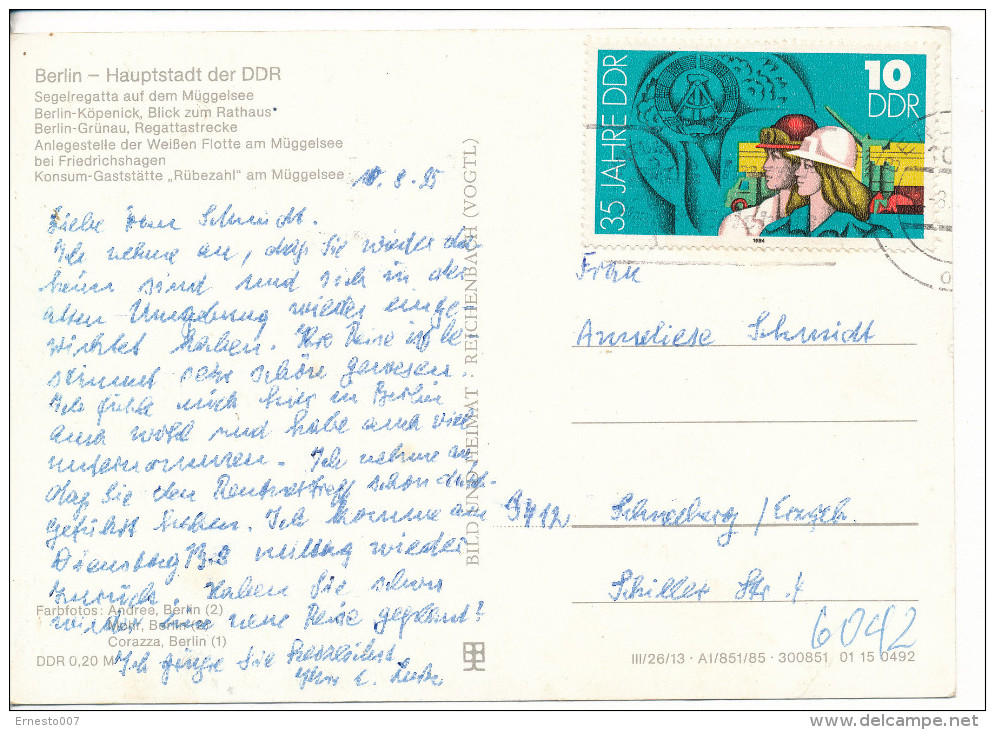 Berlin – Hauptstadt der DDR
Segelregatta auf dem Müggelsee
Berlin-Köpenick, Blick zum Rathaus
Berlin-Grünau, Regattastrecke
Anlegestelle der Weißen Flotte am Müggelsee
bei Friedrichshagen
Konsum-Gaststätte „Rübezahl" am Müggelsee
10. 8. 85
Liebe Frau Schmidt.
Ich nehme an, daß Sie wieder da
heim sind und sich in der
alten Umgebung wieder einge
wichtet haben. Ihre Reise ist be
stimmt sehr schön gewesen.
Ich fühle mich hier in Berlin
wohl und habe viel
unternommen. Ich nehme an
daß Sie den Rentnertreff schon durch-
geführt haben. Ich komme am
Dienstag 13.8 mittag wieder
zurück. Haben Sie schon
wieder eine neue Reise geplant?
Ich grüße Sie herzlichst
Ihre E.
Farbfotos: Andree, Berlin (2)
Mohr, Berlin (2)
Corazza, Berlin (1)
DDR 0,20 M
BILD UND HEIMAT REICHENBACH (VOGTL)
35 JAHRE DDR
10
DDR
1984
Frau
Anneliese Schmidt
9412 Schneeberg / Erzgeb.
Schiller Str. 4
6042
III/26/13 · A I/851/85 · 300851 01 15 0492
Ernesto007